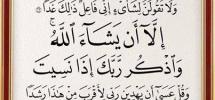 وَلَا تَقُولَنَّ لِشَا۟ىْءٍ إِنِّى فَاعِلٌ ذَٰلِكَ غَدًا
إِلَّآ أَن يَشَآءَ ٱللَّهُ ۚ
وَٱذْكُر رَّبَّكَ إِذَا نَسِيتَ
وَقُلْ عَسَىٰٓ أَن يَهْدِيَنِ رَبِّى لِأَقْرَبَ مِنْ هَٰذَا رَشَدًا